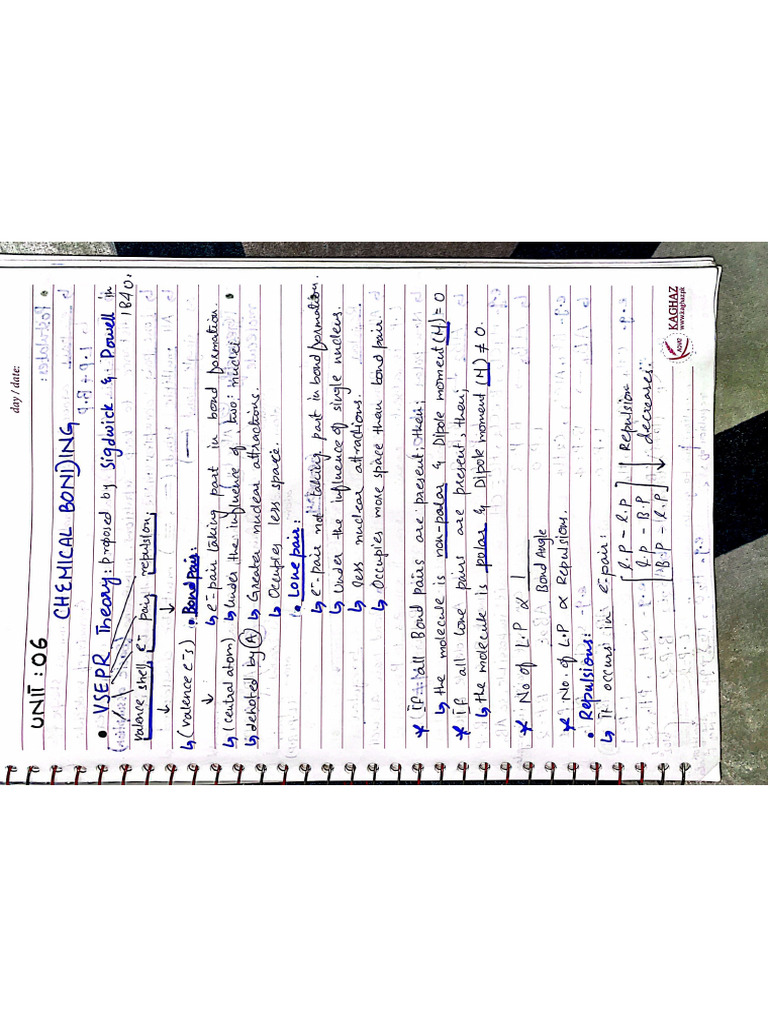 day / date:
UNIT : 06
CHEMICAL BONDING
• VSEPR Theory: proposed by Sigdwick & Powell in
1840.
valence shell e⁻ pair repulsion
↳ (valence e⁻s) • Bond pair:
↳ e⁻ pair taking part in bond formation.
↳ (central atom) ↳ under the influence of two nuclei
↳ denoted by (A) ↳ Greater nuclear attractions.
↳ Occupies less space.
• Lone pair:
↳ e⁻ pair not taking part in bond formation.
↳ Under the influence of single nucleus.
↳ less nuclear attractions.
↳ Occupies more space than bond pair.
* If all Bond Pairs are present, then;
↳ the molecule is non-polar & Dipole moment (M) = 0
* If all lone pairs are present, then;
↳ the molecule is polar & Dipole moment (M) ≠ 0.
* No of L.P ∝ 1
Bond Angle
* No. of L.P ∝ Repulsion.
• Repulsions:
↳ It occurs in e⁻ pair:
L.P - L.P Repulsion
L.P - B.P decreases.
B.P - L.P
KAGHAZ
www.kaghaz.pk